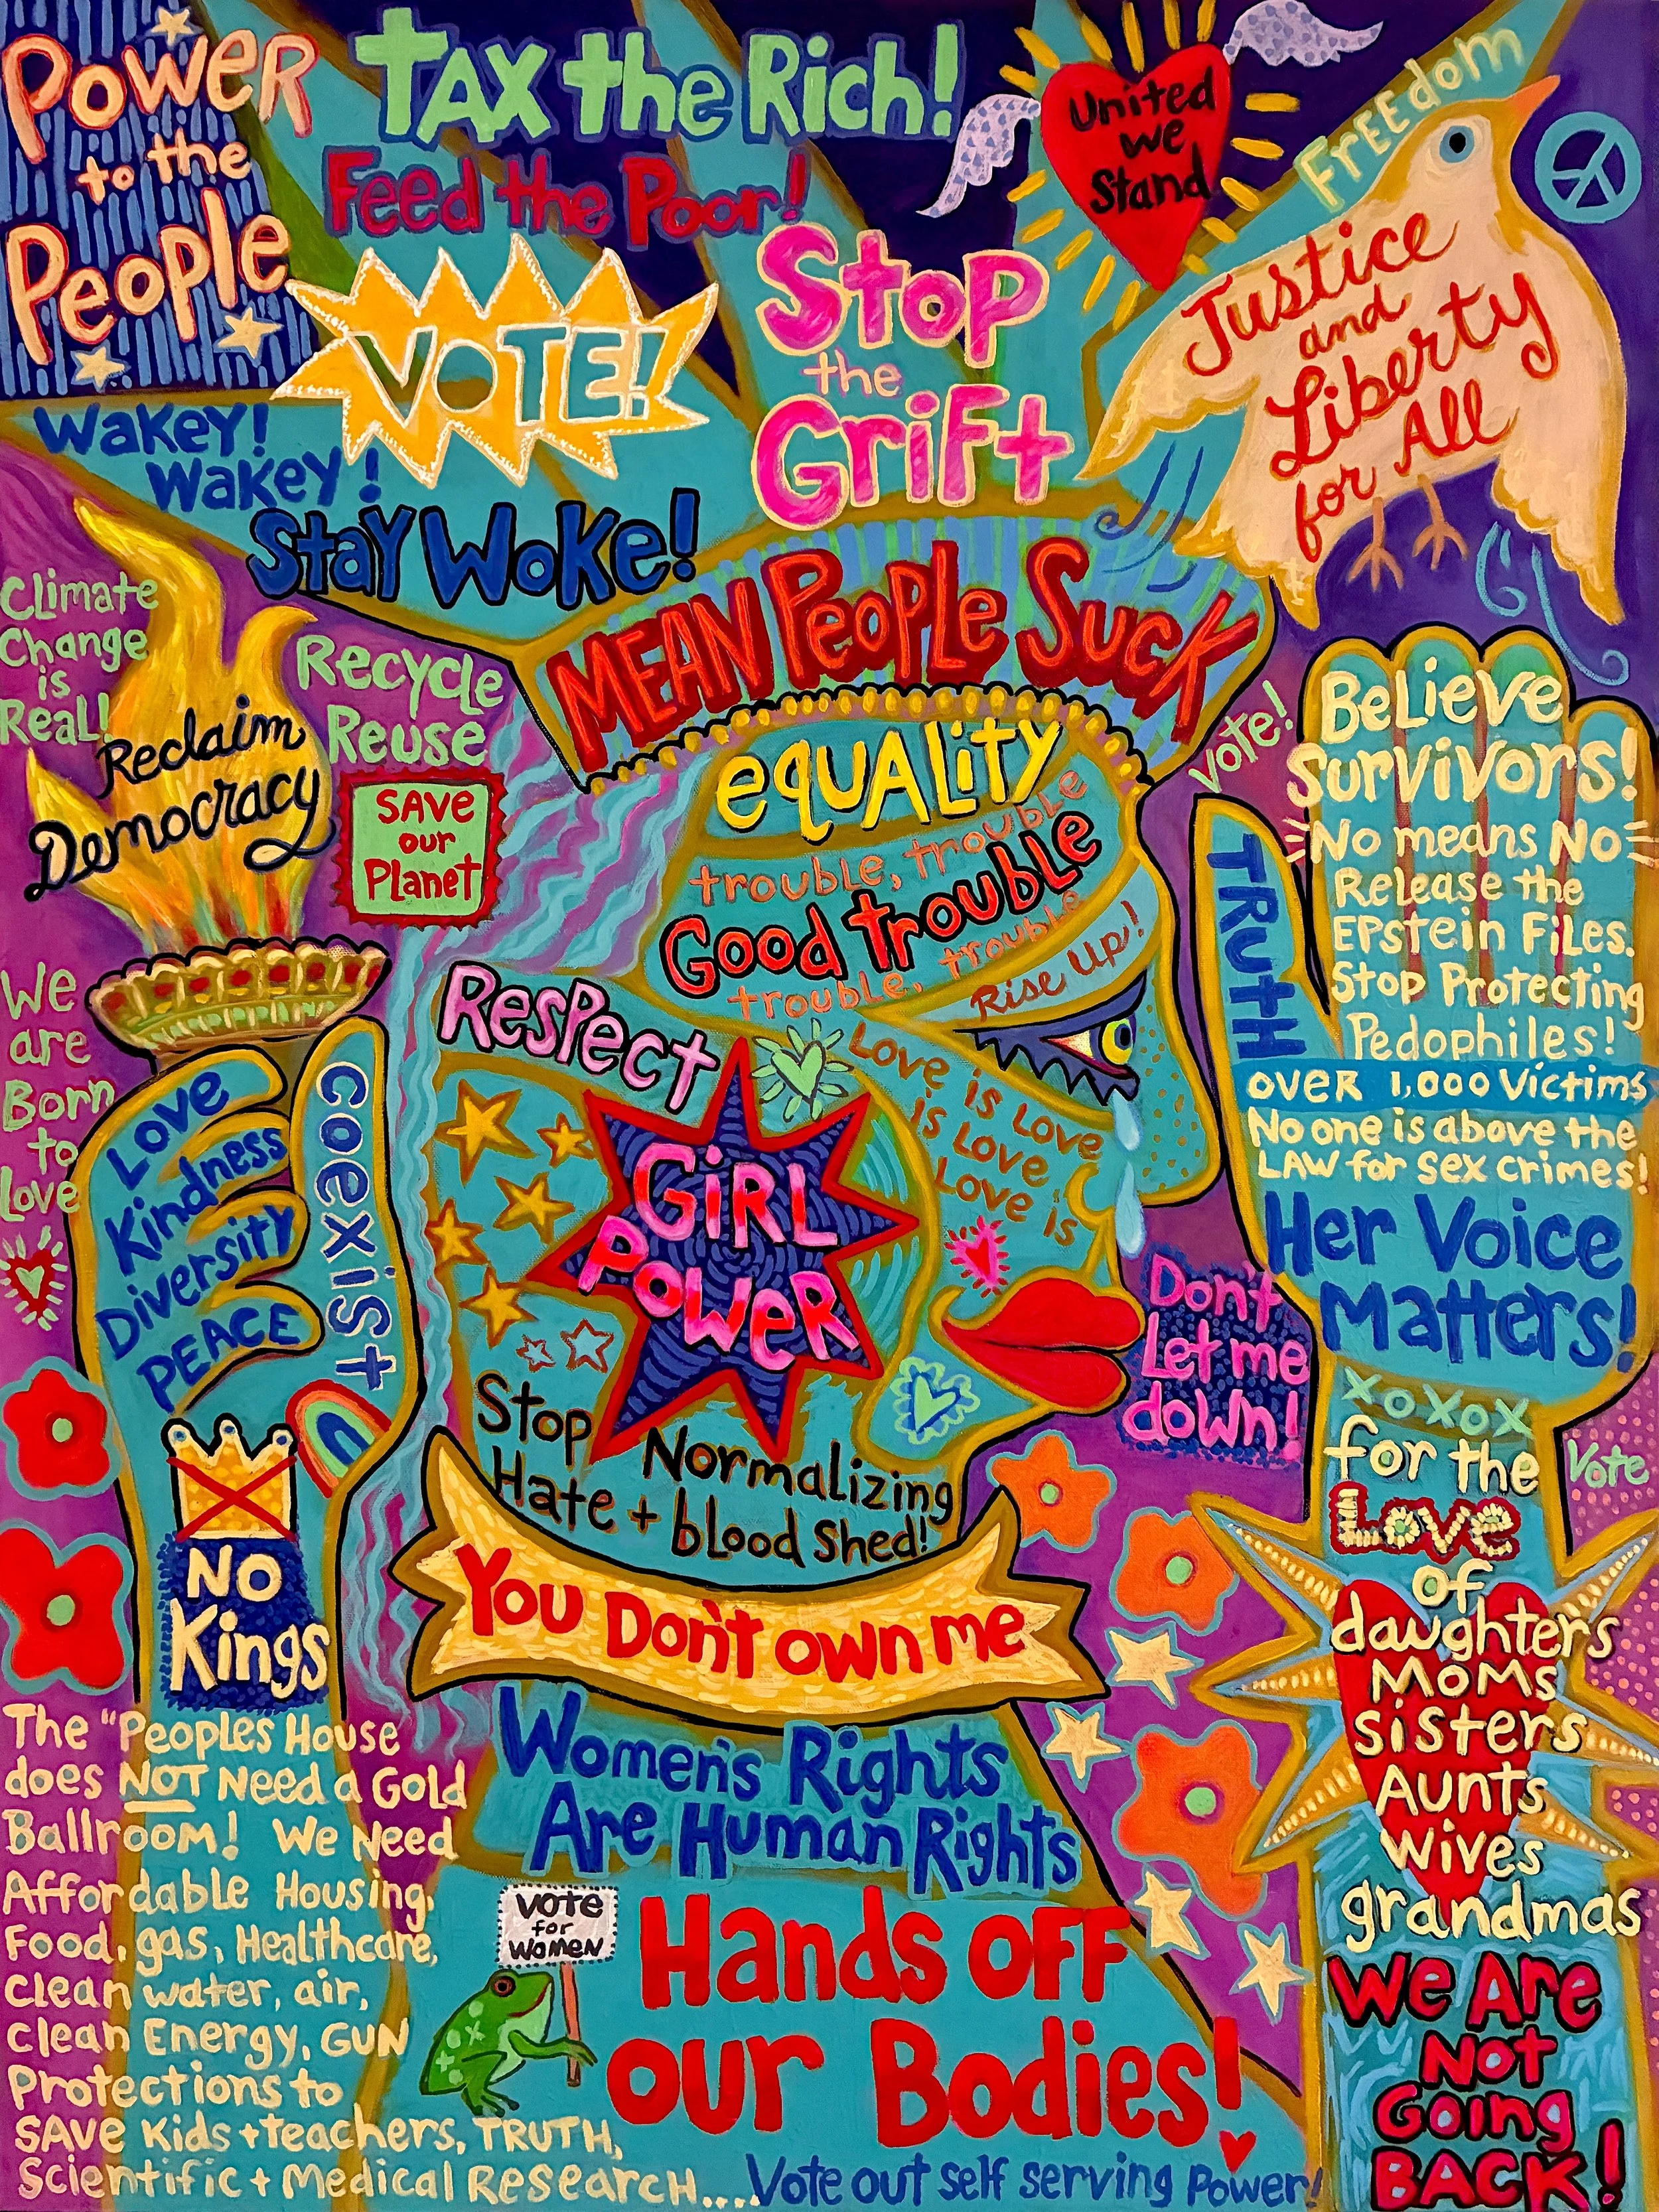 Power
to the
People
TAX the Rich!
Feed the Poor!
United
we
Stand
Freedom
Justice
and
Liberty
for All
VOTE!
Stop
the
Grift
Wakey!
Wakey!
Stay Woke!
MEAN PeoPLe Suck
Climate
Change
is
Real!
Recycle
Reuse
Reclaim
Democracy
SAVe
our
Planet
equALity
trouble, trouble
Good trouble
trouble, trouble
Rise Up!
Vote!
BeLieve
Survivors!
No means No
Release the
EPstein FiLes.
Stop Protecting
Pedophiles!
over 1,000 Victims
No one is above the
LAW for sex crimes!
Her Voice
Matters!
TRUTH
We
are
Born
to
Love
Love
Kindness
Diversity
PEACE
coexist
Respect
Love is Love
is Love
Love is
GiRL
PoweR
Don't
Let me
down!
Stop Normalizing
Hate + blood Shed!
You Don't own me
NO
Kings
xoxox
for the
Love
of
daughters
Moms
sisters
Aunts
wives
grandmas
Vote
We Are
Not
Going
BACK!
The "Peoples House
does NOT Need a Gold
Ballroom! We Need
Affordable Housing,
Food, gas, Healthcare,
Clean water, air,
Clean Energy, GUN
Protections to
SAVe Kids + teachers, TRUTH,
Scientific + Medical Research....
Women's Rights
Are Human Rights
Vote
for
Women
Hands OFF
our Bodies!
Vote out self serving Power!